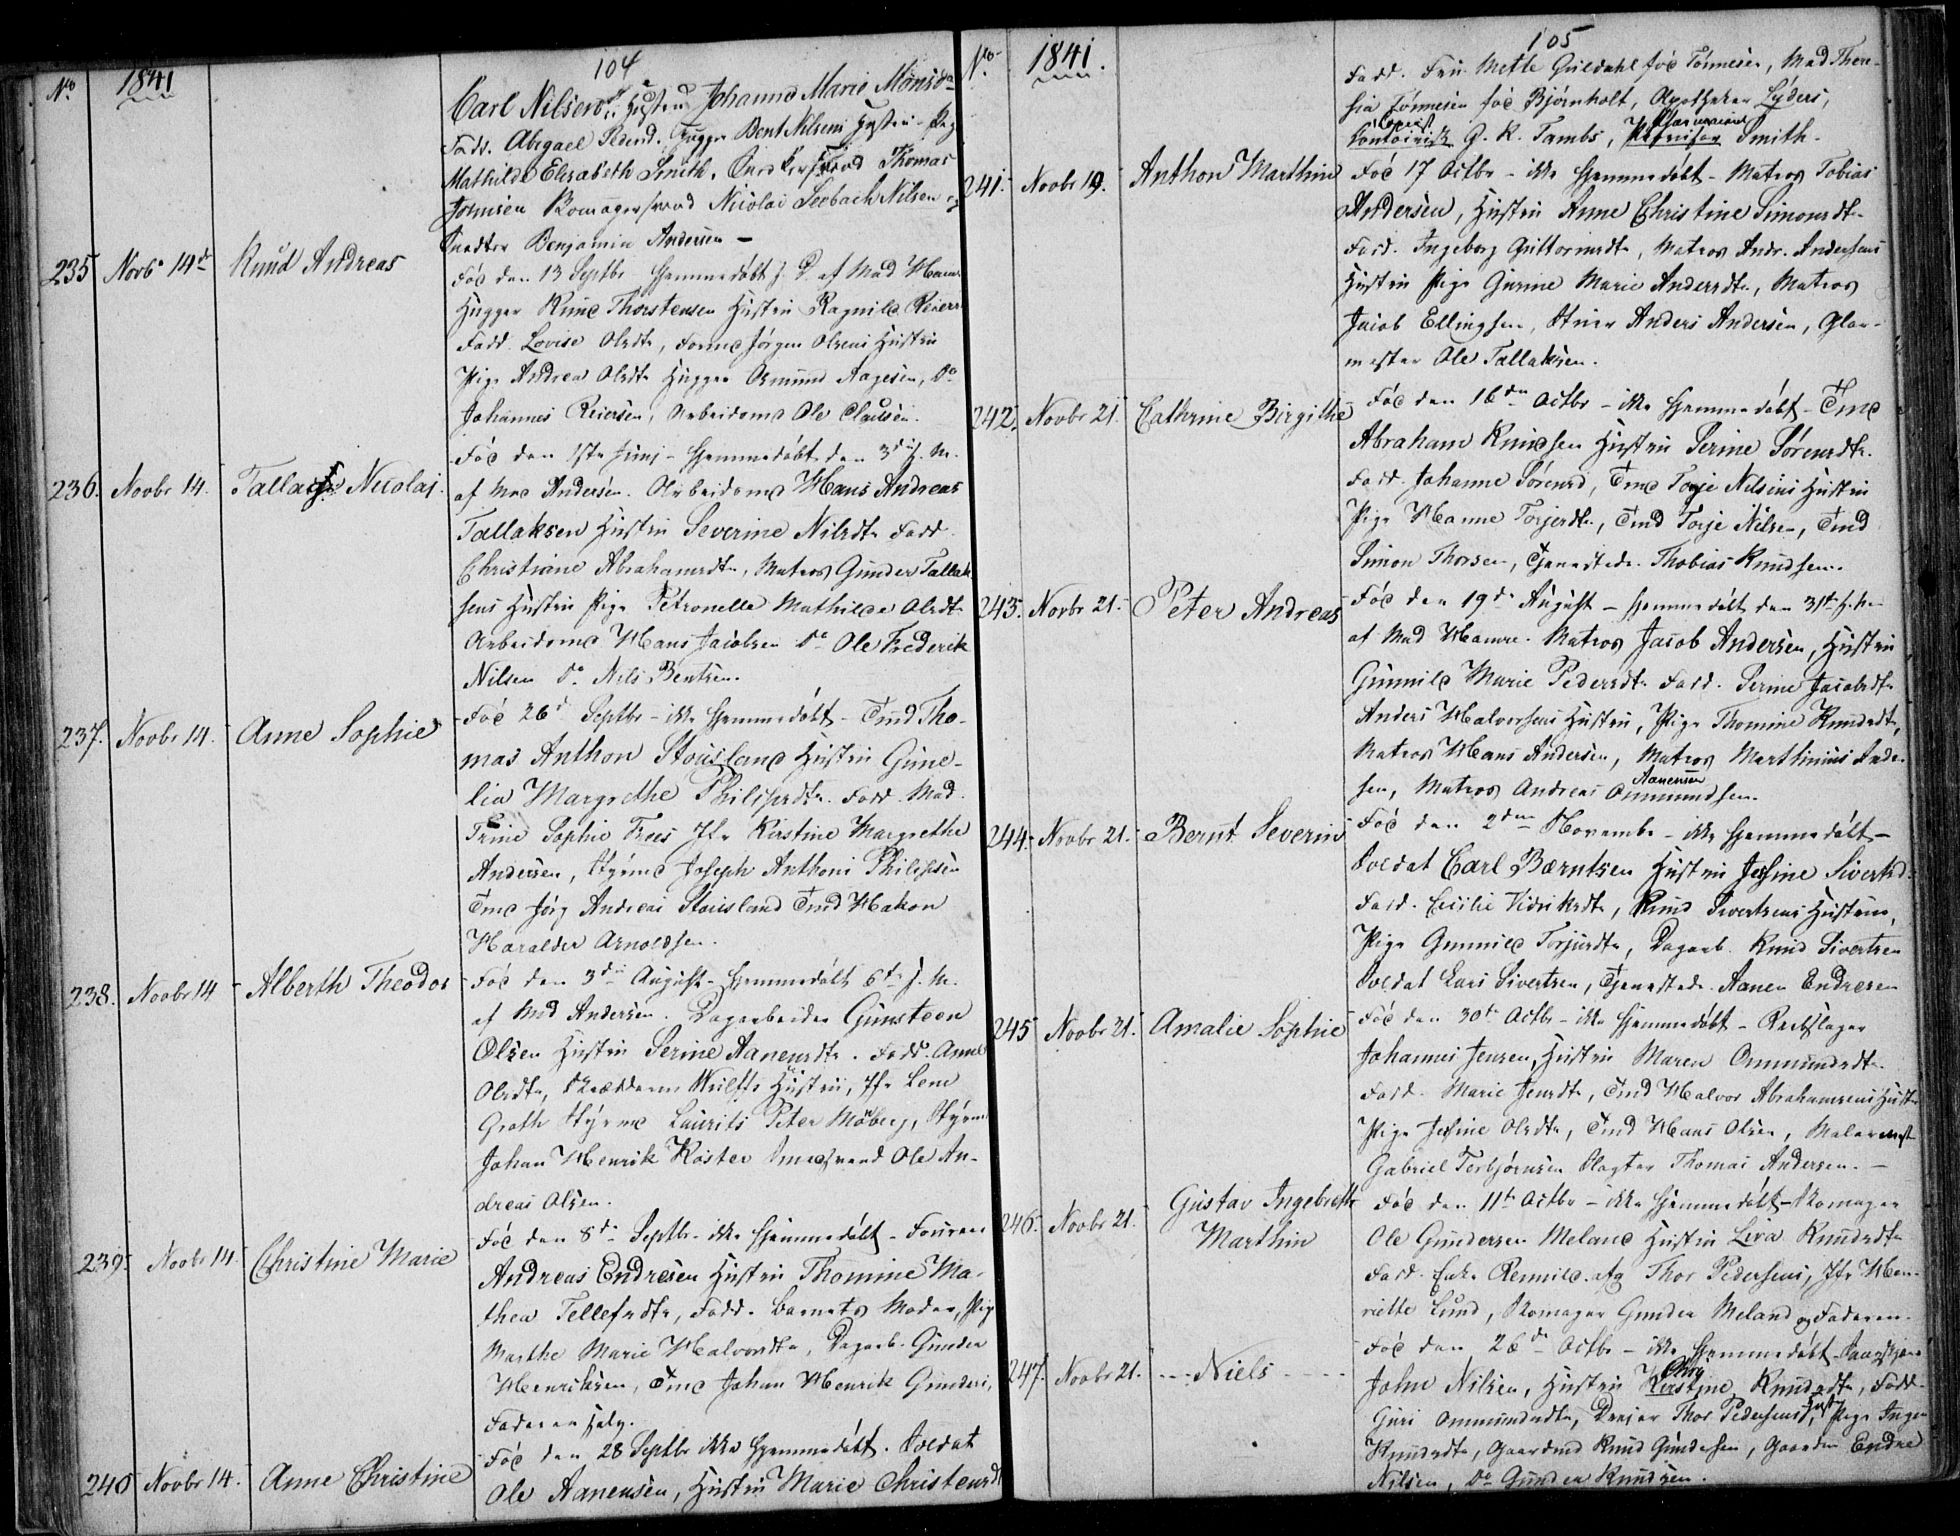 104
No 1841
Carl Nilsen Hustru Johanne Marie Mönsd
Fadd. Abigael Hugger Bent Nilsens Hustru Pig
Mathilde Elisabeth Smith, Thomas
Jonnsen Nicolai Seebach Nilsen og
Benjamin Andersen —
235 Novb 14d Knud Andreas
Föd den 13 Septbr Hjemmedöbt J. D. af Mad Hamre
Hugger Knud Thorstensen Hustru Ragnild Reiers
Fadd. Lovise Olsdtr, Jörgen Olsens Hustru
Pige Andrea Olsdtr Hugger Osmund Aagesen, Do
Johannes Reiersen, Arbeidsmd Ole Clausen.
236. Novbr 14. Nicolaj.
Föd den 1ste Juni – Hjemmedöbt den 3d J. M.
af Md Andersen. Arbeidsmd Hans Andreas
Tallaksen Hustru Severine Nilsdtr Fadd.
Christiane Abrahamsdtr, Matros Gunder Tallak
sens Hustru Pige Petronelle Mathilde Olsdtr
Arbeidsmd Hans Jacobsen Do Ole Frederik
Nilsen Do Nils Bentsen.
237. Novbr 14. Anne Sophie
Föd 26d Septbr – ikke Hjemmedöbt – Tmd Tho-
mas Anthon Stousland Hustru Gune-
lia Margrethe Philipsdtr. Fadd. Mad.
Trine Sophie Trees Jfr Kirstine Margrethe
Andersen, Styrmd Joseph Anthoni Philipsen
Tmd Jörg Andreas Stousland Tmd Hakon
Haralder Arnoldsen.
238. Novbr 14 Alberth Theodor
Föd den 3d August – Hjemmedöbt 6te J. M.
af Md Andersen. Dagarbeider Gunsteen
Olsen Hustru Serine Aanensdtr. Fadd. Anne
Olsdtr, Skrædderm Wulffs Hustru, Jfr Lene
Groth Styrmd Laurits Peter Möberg, Styrm
Johan Henrik Köster Ole An-
dreas Olsen.
239. Novbr 14 Christine Marie
Föd den 8de Septbr ikke Hjemmedöbt – Fourer
Andreas Endresen Hustru Thomine Ma-
thea Tellefsdtr, Fadd. Barnets Moder, Pig
Marthe Marie Halvorsdtr, Dagarb. Gunder
Henriksen, Tmd Johan Henrik Gunders,
Faderen selv.
240 Novbr 14. Anne Christine
Föd den 28 Septbr ikke Hjemmedöbt. Soldat
Ole Aanensen, Hustru Marie Christensdt
105
No. 1841.
Fadd. Fru Mette Guldahl föd Tönnesen, Mad There-
sia Tönnesen föd Björnholt, Apotheker Lyders,
Kopeist
G. R. Tambs, Smith.
241. Novbr 19. Anthon Marthin
Föd 17 Octbr – ikke Hjemmedöbt – Matros Tobias
Andersen, Hustru Anne Christine Simonsdtr
Fadd. Ingeborg Guttormsdtr, Matros Andr. Andersens
Hustru Pige Gurine Marie Andersdtr, Matros
Jacob Ellingsen, Anders Andersen, Glar-
mester Ole Tallaksen.
242. Novbr 21. Cathrine Birgithe
Föd den 16de Octbr – ikke Hjemmedöbt – Tmd
Abraham Knudsen Hustru Serine Sörensdtr.
Fadd. Johanne Sörensd, Tmd Torje Nilsens Hustru
Pige Hanne Torjersdtr, Tmd Torje Nilsen, Tmd
Simon Thorsen, Tjenestedr. Thobias Knudsen.
243. Novbr 21. Peter Andreas
Föd den 19de August – Hjemmedöbt den 31te
af Mad Hamre. Matros Jacob Andersen, Hustru
Gunnild Marie Pedersdtr. Fadd. Serine Jacobsdtr
Anders Halvorsens Hustru, Pige Thomine Knudsdtr,
Matros Hans Andersen, Matros Marthinius Ander
Aanensen
sen, Matros Andreas Ommundsen.
244. Novbr 21. Bernt Severin
Föd den 2den Novembr – ikke Hjemmedöbt –
Soldat Carl Bærntsen Hustru Josine Sivertsd.
Fadd. Cecilie Vidriksdtr, Knud Sivertsens Hustru,
Pige Gunnild Torjusdtr, Dagarb. Knud Sivertsen
Soldat Lars Sivertsen, Tjenestedr. Aanen Endresen
245 Novbr 21. Amalie Sophie
Föd den 30te Octbr – ikke Hjemmedöbt – Rebslager
Johannes Jensen, Hustru Maren Ommundsdtr.
Fadd. Marie Jensdtr, Tmd Halvor Abrahamsens Hustr
Pige Josine Olsdtr, Tmd Hans Olsen, Malermest
Gabriel Torbjörnsen Slagter Thomas Andersen. –
246. Novbr 21. Gustav Ingebrethr
Marthin
Föd den 11te Octbr – ikke Hjemmedöbt – Skomager
Ole Gundersen Meland Hustru Liva Knudsdtr
Fadd. Enke Rennild afg Thor Pedersens, Jfr Hen-
riette Lund, Skomager Gunder Meland og Faderen.
247. Novbr 21. --- Niels ----
Föd den 26de Octbr – ikke Hjemmedöbt –
Chrs
John Nilsen, Hustru Kirstine Knudsdtr, Fadd.
Guri Ommundsdtr, Dreier Thor Pedersens Hust, Pige Inger
Knudsdtr, Gaardmd Knud Gundersen, Gaardm Endre
Nilsen, Do Gunder Knudsen.